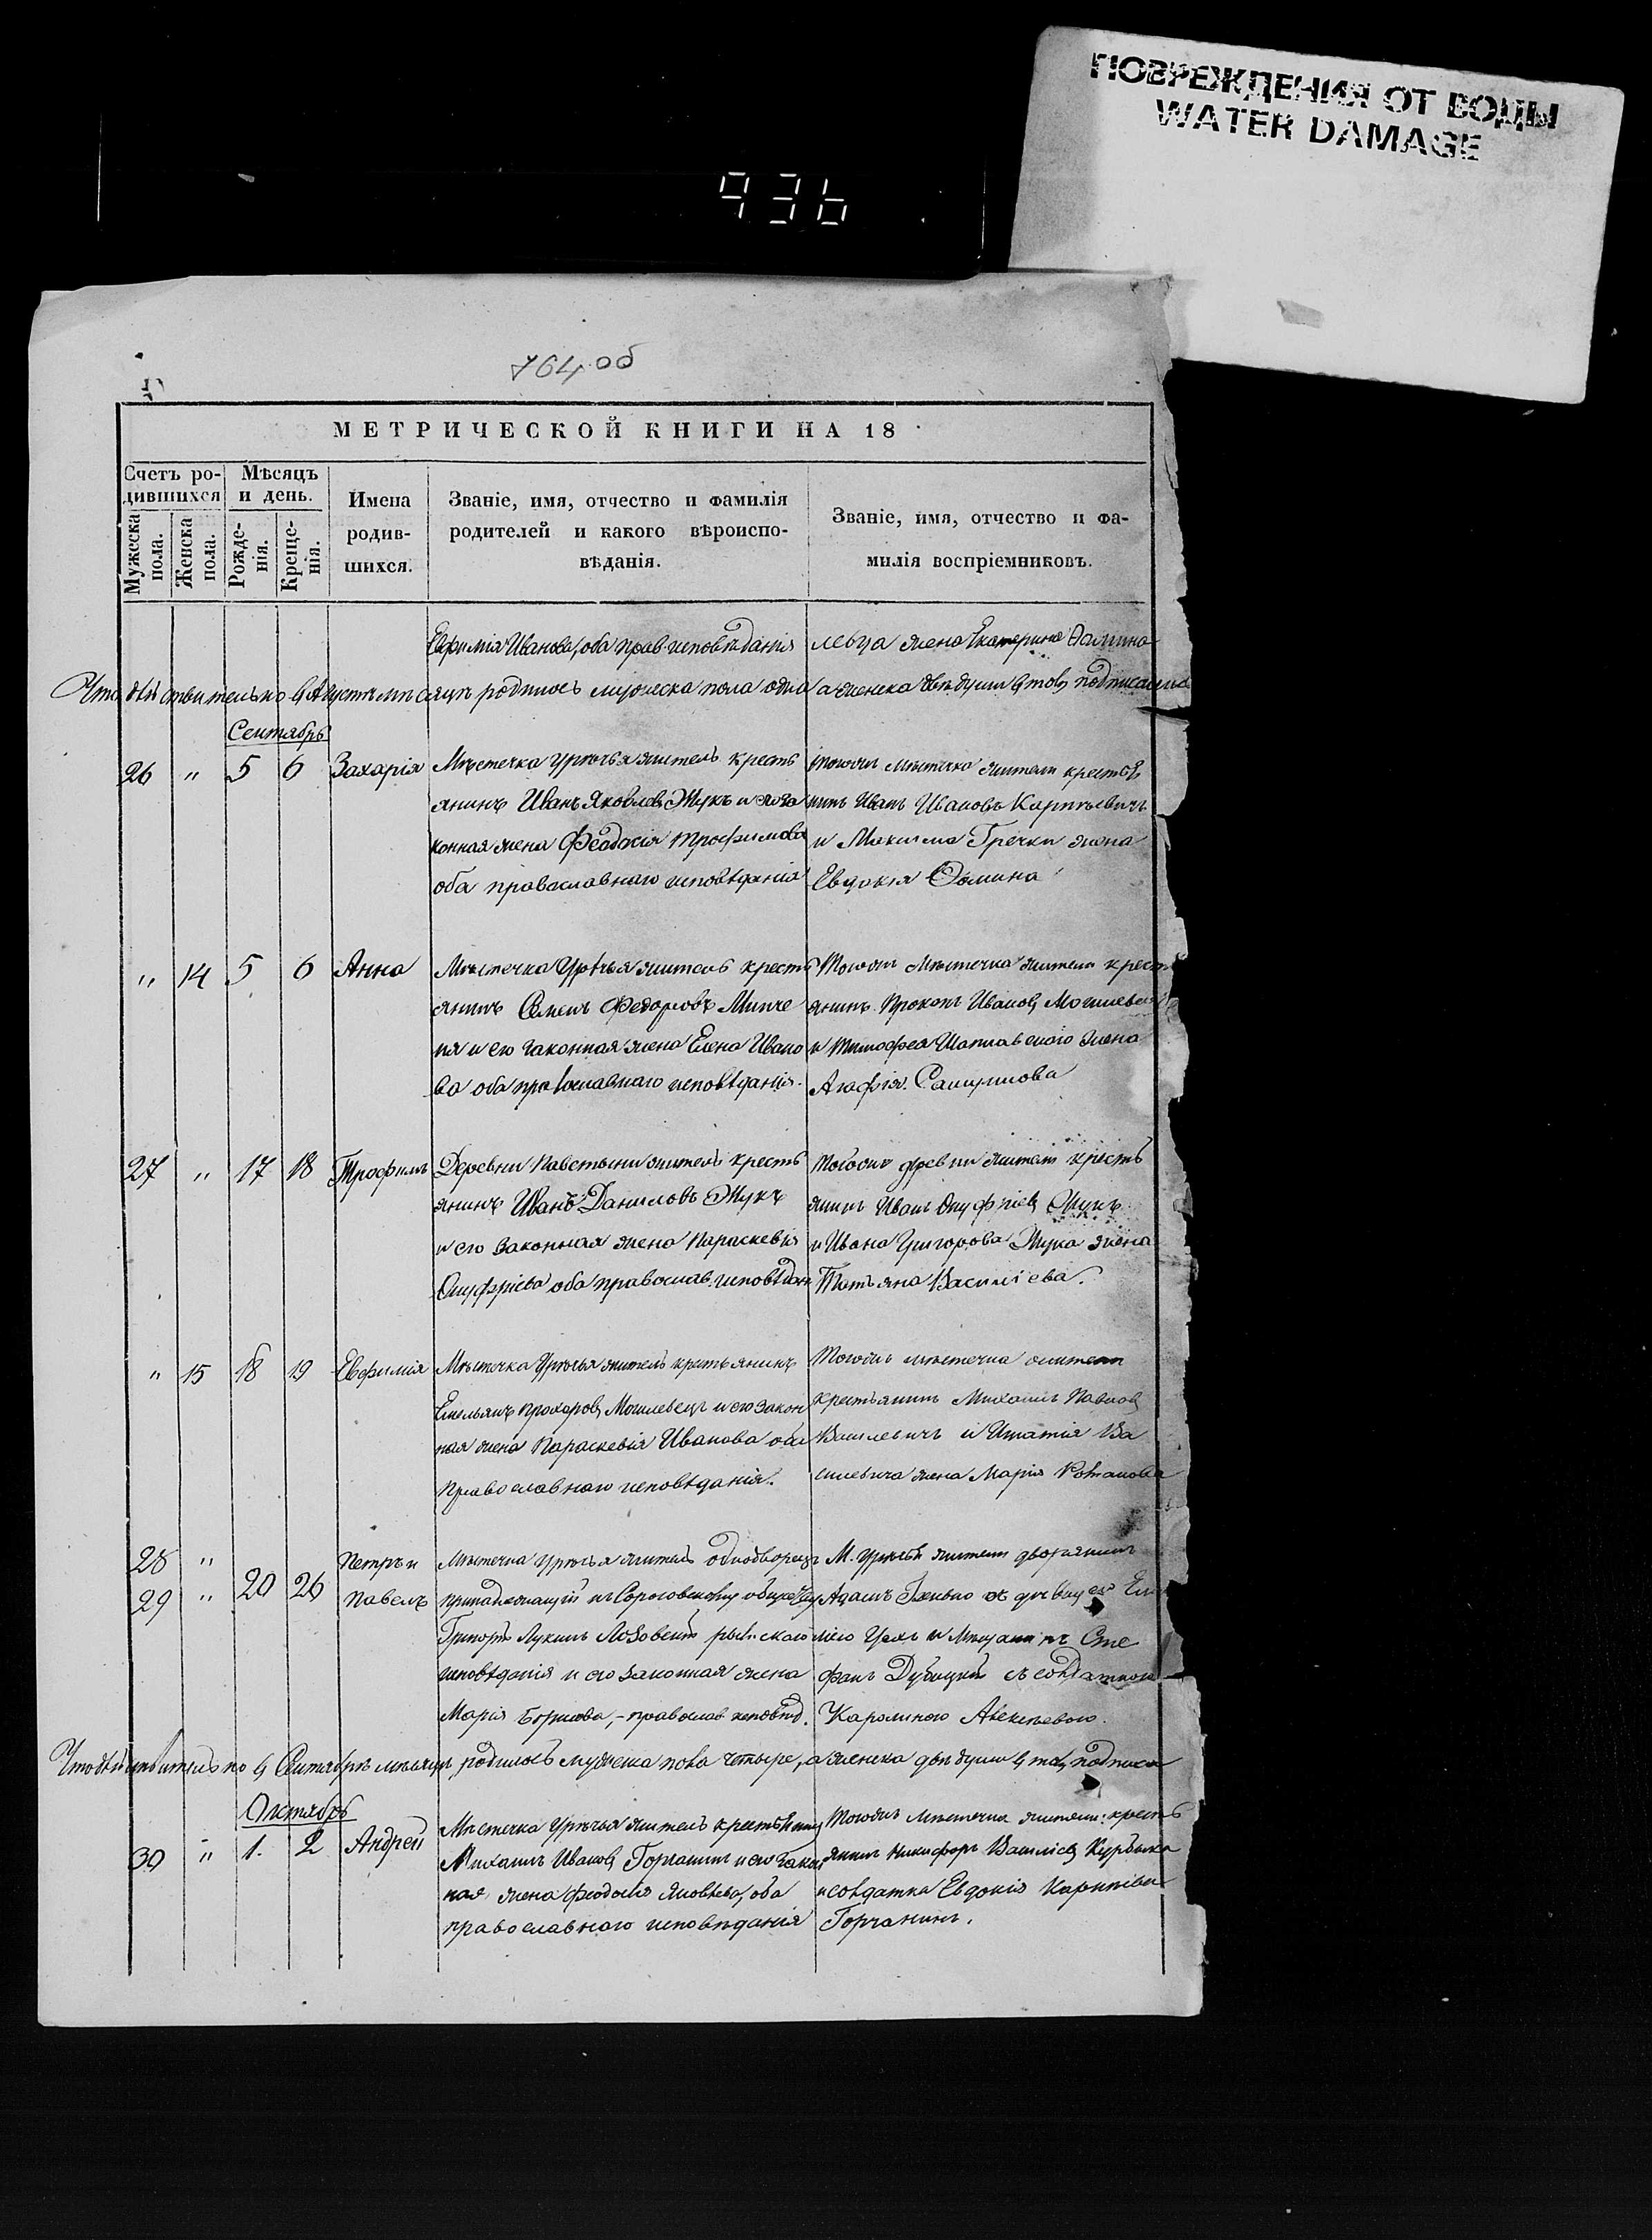 ПОВРЕЖДЕНИЯ ОТ ВОДЫ
WATER DAMAGE
936
764 об
МЕТРИЧЕСКОЙ КНИГИ НА 18
Счетъ ро-
дившихся
Мужеска пола.
Женска пола.
Мѣсяцъ
и день.
Рожде-
нія.
Креще-
нія.
Имена
родив-
шихся.
Званіе, имя, отчество и фамилія
родителей и какого вѣроиспо-
вѣданія.
Званіе, имя, отчество и фа-
милія воспріемниковъ.
Евфимія Иванова, оба прав. исповѣданія
жена Екатерина Фомина
Что дѣйствительно въ Августѣ мѣсяцѣ родилось мужеска пола одна а женска двѣ души въ томъ подписались
Сентябрь
26 " 5 6 Захарія
Мѣстечка Урѣчья житель кресть
янинъ Иванъ Яковлевъ Жукъ и его за
конная жена Феодосія Трофимова
оба православнаго исповѣданія
Тогожъ мѣстечка житель крестья
нинъ Иванъ Ивановъ
и Максима Гречки жена
Евдокія Фомина
" 14 5 6 Анна
Мѣстечка Урѣчья житель кресть
янинъ Семенъ Федоровъ
и его законная жена Елена Ивано
ва оба православнаго исповѣданія.
Тогожъ мѣстечка житель кресть
янинъ Прокопъ Ивановъ
и Тимофея жена
Агафія
27 " 17 18 Трофимъ
Деревни житель кресть
янинъ Иванъ Даниловъ Жукъ
и его законная жена Параскевія
Онуфріева оба православ. исповѣдан
Тогожъ деревни житель кресть
янинъ Иванъ Онуфріевъ Жукъ
и Ивана Григорова Жука жена
Татьяна Василіева.
" 15 18 19 Евфимія
Мѣстечка Урѣчья житель крестьянинъ
Емельянъ Прохоровъ Могилевецъ и его закон
ная жена Параскевія Иванова оба
Православнаго исповѣданія.
Тогожъ мѣстечка житель
крестьянинъ Михаилъ Павловъ
Василевичъ и Игнатія Ва
силевича жена Марія Романова
28 "
29 " 20 26
Петръ и
Павелъ
Мѣстечка Урѣчья житель однодворецъ
принадлежащій къ обществу
Григорій Лукинъ римскаго
исповѣданія и его законная жена
Марія Борисова, - православ. исповѣд.
М. Урѣчья житель дворянинъ
Адамъ
и Мѣщанинъ Сте
фанъ Дубицкій съ солдаткою
Каролиною Алексѣевою.
Что дѣйствительно въ Сентябрѣ мѣсяцѣ родилось мужеска пола четыре, а женска двѣ души въ томъ подписа
Октябрь
30 " 1. 2 Андрей
Мѣстечка Урѣчья житель крестьянинъ
Михаилъ Ивановъ Горчанинъ и его закон
ная жена Феодосія Яковлева, оба
православнаго исповѣданія
Тогожъ мѣстечка житель кресть
янинъ Никифоръ Василіевъ
и солдатка Евдокія
Горчанинъ.